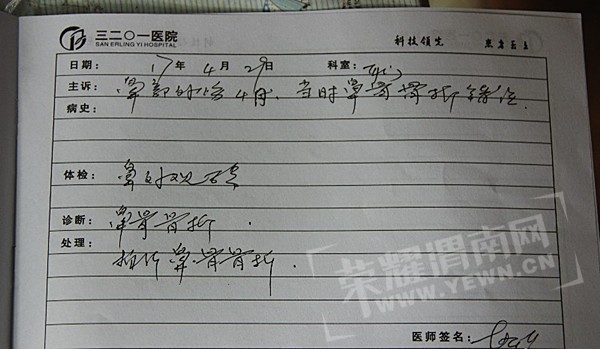 三二〇一医院
SAN ERLING YI HOSPITAL
科技领先
日期: 17年4月29日 科室:
主诉: 鼻部外伤4月、当时鼻骨骨折错位.
病史:
体检: 鼻外观
诊断: 鼻骨骨折.
处理:
鼻骨骨折.
荣耀渭南网
WWW.YEWN.CN
医师签名: